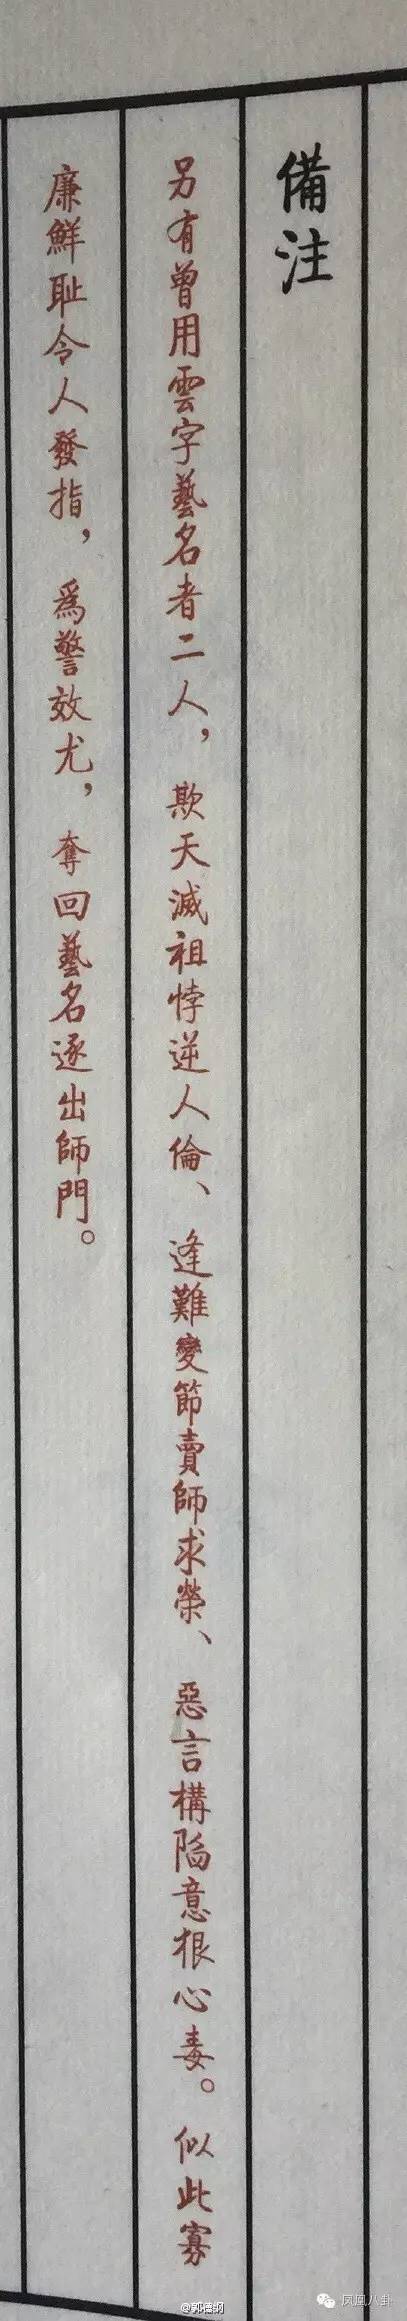 備注
另有曾用雲字藝名者二人，欺天滅祖悖逆人倫、逢難變節賣師求榮、惡言構陷意狠心毒。似此寡
廉鮮耻令人發指，爲警效尤，奪回藝名逐出師門。
@郭德纲
凤凰八卦